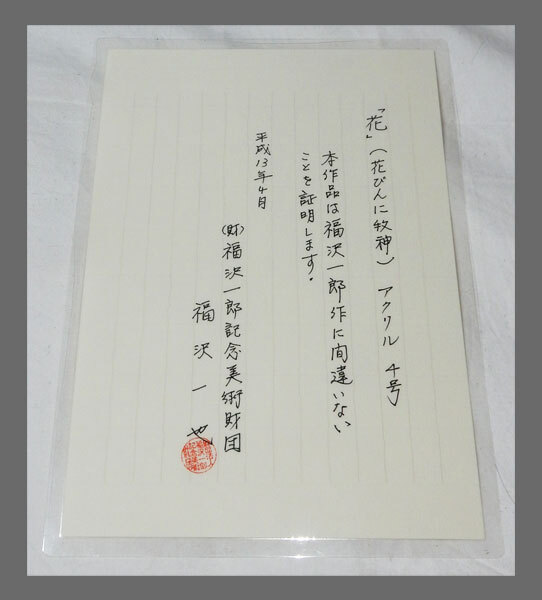 「花」（花びんに牧神） アクリル 4号
本作品は福沢一郎作に間違いない
ことを証明します。
平成13年4月
(財)福沢一郎記念美術財団
福沢一也